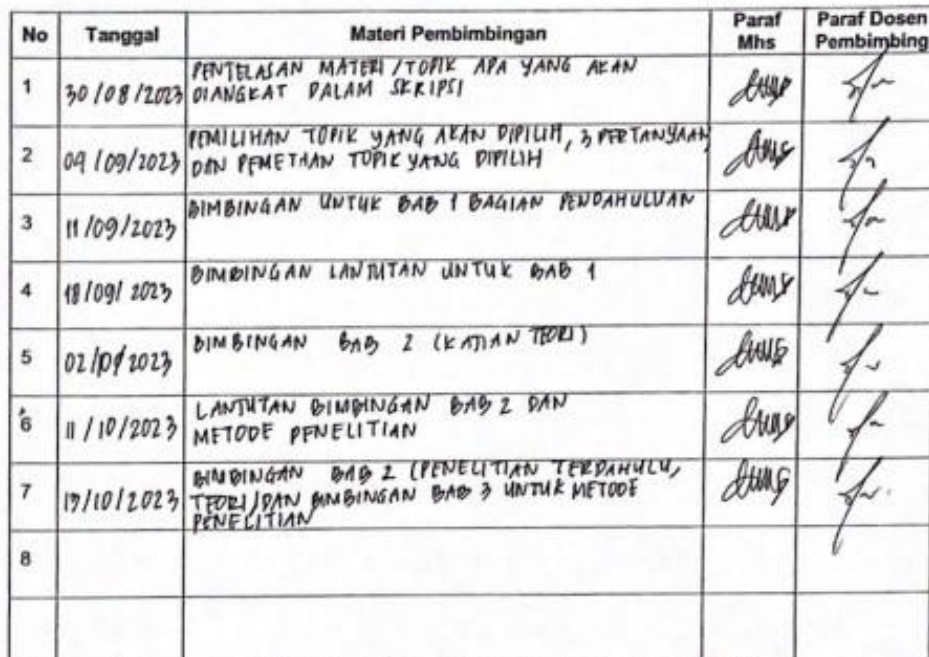 No Tanggal Materi Pembimbingan Paraf Mhs Paraf Dosen Pembimbing
1 30/08/2023 PENJELASAN MATERI/TOPIK APA YANG AKAN
DIANGKAT DALAM SKRIPSI
2 09/09/2023 PEMILIHAN TOPIK YANG AKAN DIPILIH, 3 PERTANYAAN,
DAN PEMETAAN TOPIK YANG DIPILIH
3 11/09/2023 BIMBINGAN UNTUK BAB 1 BAGIAN PENDAHULUAN
4 18/09/2023 BIMBINGAN LANJUTAN UNTUK BAB 1
5 02/ /2023 BIMBINGAN BAB 2 (KAJIAN TEORI)
6 11/10/2023 LANJUTAN BIMBINGAN BAB 2 DAN
METODE PENELITIAN
7 13/10/2023 BIMBINGAN BAB 2 (PENELITIAN TERDAHULU,
TEORI) DAN BIMBINGAN BAB 3 UNTUK METODE
PENELITIAN
8